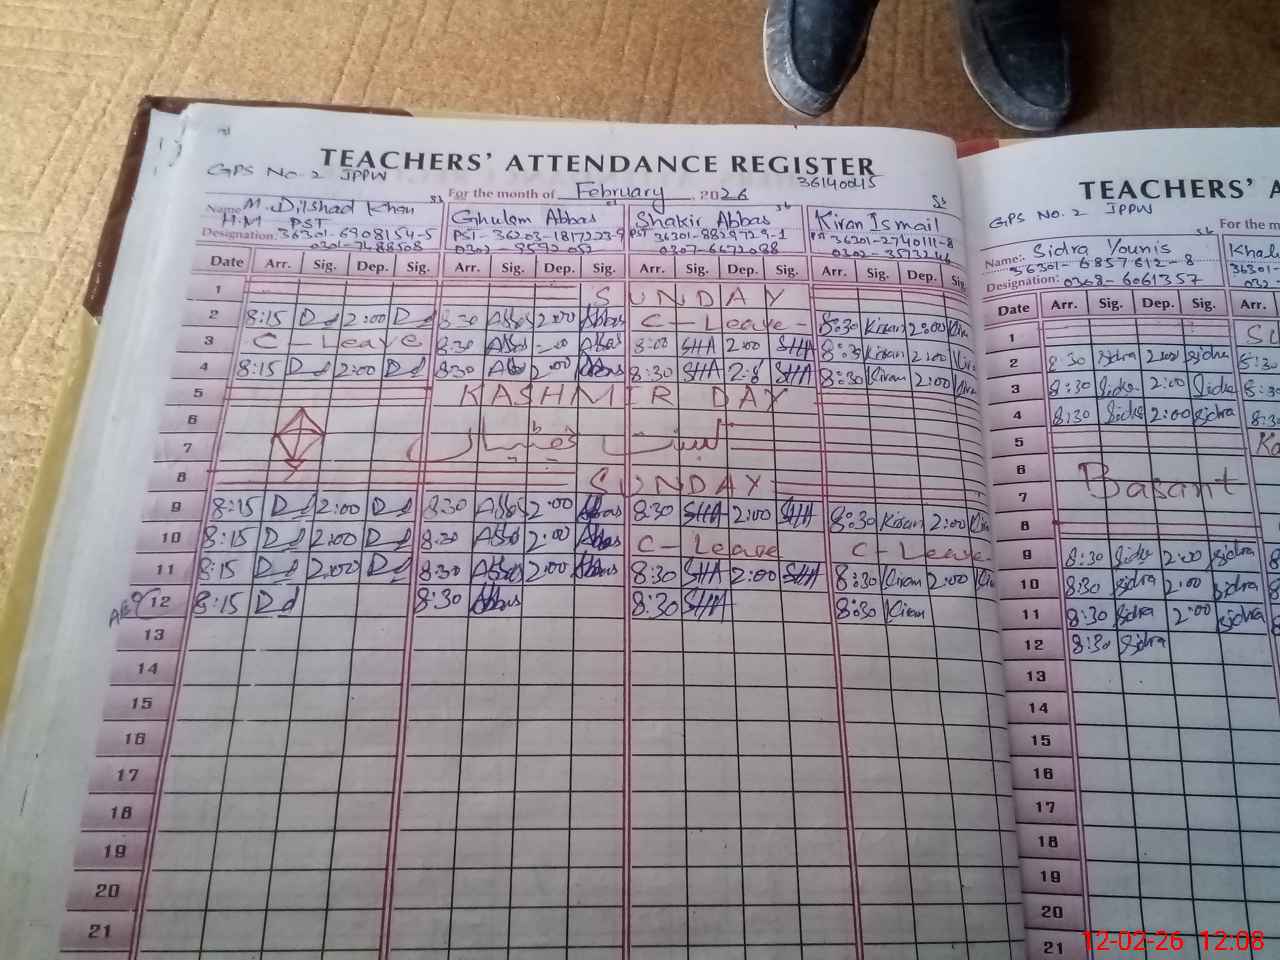 TEACHERS' ATTENDANCE REGISTER
GPS No. 2 JPPW
36140045
For the month of February, 2026
Name M. Dilshad Khan
H.M PST
Designation: 36301-6908154-5
0301-7488508
Ghulam Abbas
PST-36203-1817223-9
0302-9592052
Shakir Abbas
PST 36301-8829729-1
0307-6672088
Kiran Ismail
36301-2740111-8
0302-3573246
Date Arr. Sig. Dep. Sig. Arr. Sig. Dep. Sig. Arr. Sig. Dep. Sig. Arr. Sig. Dep. Sig.
1 SUNDAY
2 8:15 Dd 2:00 Dd 8:30 Abbas 2:00 Abbas C-Leave- 8:30 Kiran 2:00 Kira
3 C-Leave 8:30 Abbas 2:00 Abbas 8:00 SHA 2:00 SHA 8:30 Kiran 2:00 Kira
4 8:15 Dd 2:00 Dd 8:30 Abbas 2:00 Abbas 8:30 SHA 2:0 SHA 8:30 Kiran 2:00 Kira
5 KASHMIR DAY
6
7
8 SUNDAY
9 8:15 Dd 2:00 Dd 8:30 Abbas 2:00 Abbas 8:30 SHA 2:00 SHA 8:30 Kiran 2:00 Kir
10 8:15 Dd 2:00 Dd 8:30 Abbas 2:00 Abbas C-Leave C-Leave
11 8:15 Dd 2:00 Dd 8:30 Abbas 2:00 Abbas 8:30 SHA 2:00 SHA 8:30 Kiran 2:00 Kir
12 8:15 Dd 8:30 Abbas 8:30 SHA 8:30 Kiran
13
14
15
16
17
18
19
20
21
TEACHERS' A
GPS No. 2 JPPW
For the m
Name: Sidra Younis
36301-6857612-8
Designation: 0308-6061357
Khal
36301-
032-
Date Arr. Sig. Dep. Sig. Arr.
1 SU
2 8:30 Sidra 2:00 Sidra 8:30
3 8:30 Sidra 2:00 Sidra 8:3
4 8:30 Sidra 2:00 Sidra 8:3
5 Ka
6 Basant
7
8
9 8:30 Sidra 2:00 Sidra 8
10 8:30 Sidra 2:00 Sidra 8
11 8:30 Sidra 2:00 Sidra 8
12 8:30 Sidra
13
14
15
16
17
18
19
20
21
12-02-26 12:08